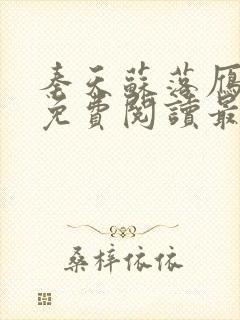 奉天蘇落雁
免費閱讀最
桑梓依依